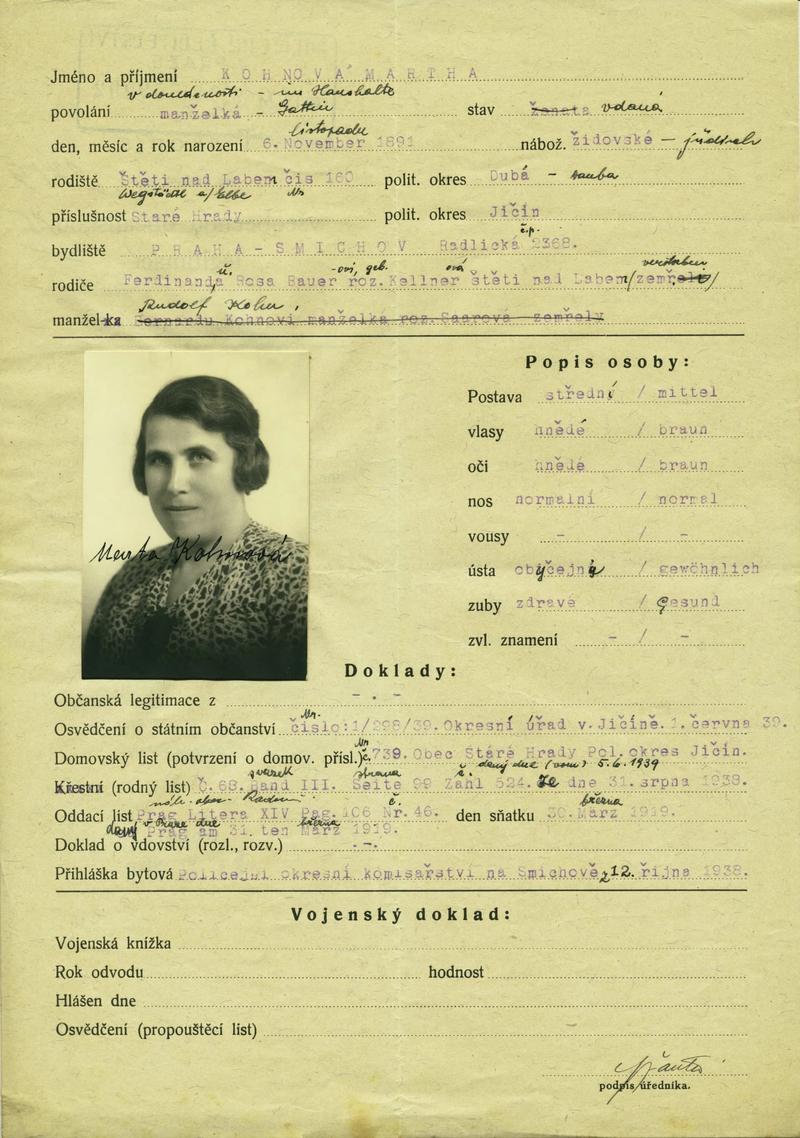 Jméno a příjmení KOHNOVÁ MARTHA
v domácnosti - im Haushalte
povolání manželka - Gattin stav ženata vdaná
listopadu
den, měsíc a rok narození 6. November 1891 nábož. židovské - jüdisch
rodiště Štěti nad Labem čís 160 polit. okres Dubá - Dauba
Wegstädtl a/Elbe Nr
příslušnost Staré Hrady polit. okres Jičín
č.p.
bydliště PRAHA-SMICHOV Radlická 2368.
rodiče Ferdinanda Rosa Bauer roz. Kellner štěti nad Labem/zemř./
Rudolf Kohn,
manžel-ka Bernardu Kohnovi manželka roz. Saarová zemřelý
Popis osoby:
Postava střední / mittel
vlasy hnědé / braun
oči hnědé / braun
nos normalní / normal
vousy - / -
ústa obyčejný / gewöhnlich
zuby zdravé / gesund
zvl. znamení - / -
Marta Kohnová
Doklady:
Občanská legitimace z - · -
Nr.
Osvědčení o státním občanství číslo:1/298/39. Okresní úřad v.Jičíně.1.června 39.
Nr
Domovský list (potvrzení o domov. přísl.) č.739. Obec Staré Hrady Pol.okres Jičín.
svazek strana 5.6.1939
Křestní (rodný list) Č.68. Band III. Seite 99 Zahl 524. Ze dne 31. srpna 1938.
č. března
Oddací list Prag Litera XIV Pag.106 Nr.46. den sňatku 30.März 1919.
daný v Praze dne března
Prag am 31. ten März 1919.
Doklad o vdovství (rozl., rozv.) - -.
Přihláška bytová Policejní okresní komisařství na Smichově,12. října 1938.
Vojenský doklad:
Vojenská knížka
Rok odvodu hodnost
Hlášen dne
Osvědčení (propouštěcí list) -
podpis úředníka.